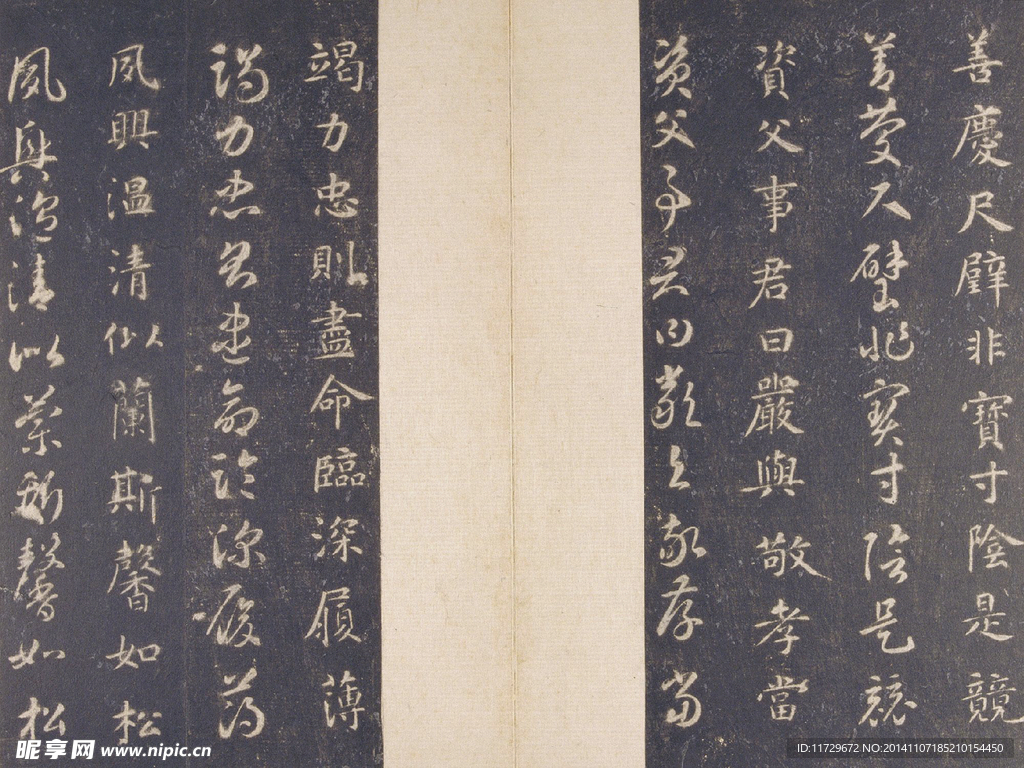 善慶尺璧非寶寸陰是競
善慶尺璧非寶寸陰是競
資父事君曰嚴與敬孝當
資父事君曰嚴與敬孝當
竭力忠則盡命臨深履薄
竭力忠則盡命臨深履薄
夙興温清似蘭斯馨如松
夙興温清似蘭斯馨如松
昵享网 www.nipic.cn
ID:11729672 NO:20141107185210154450